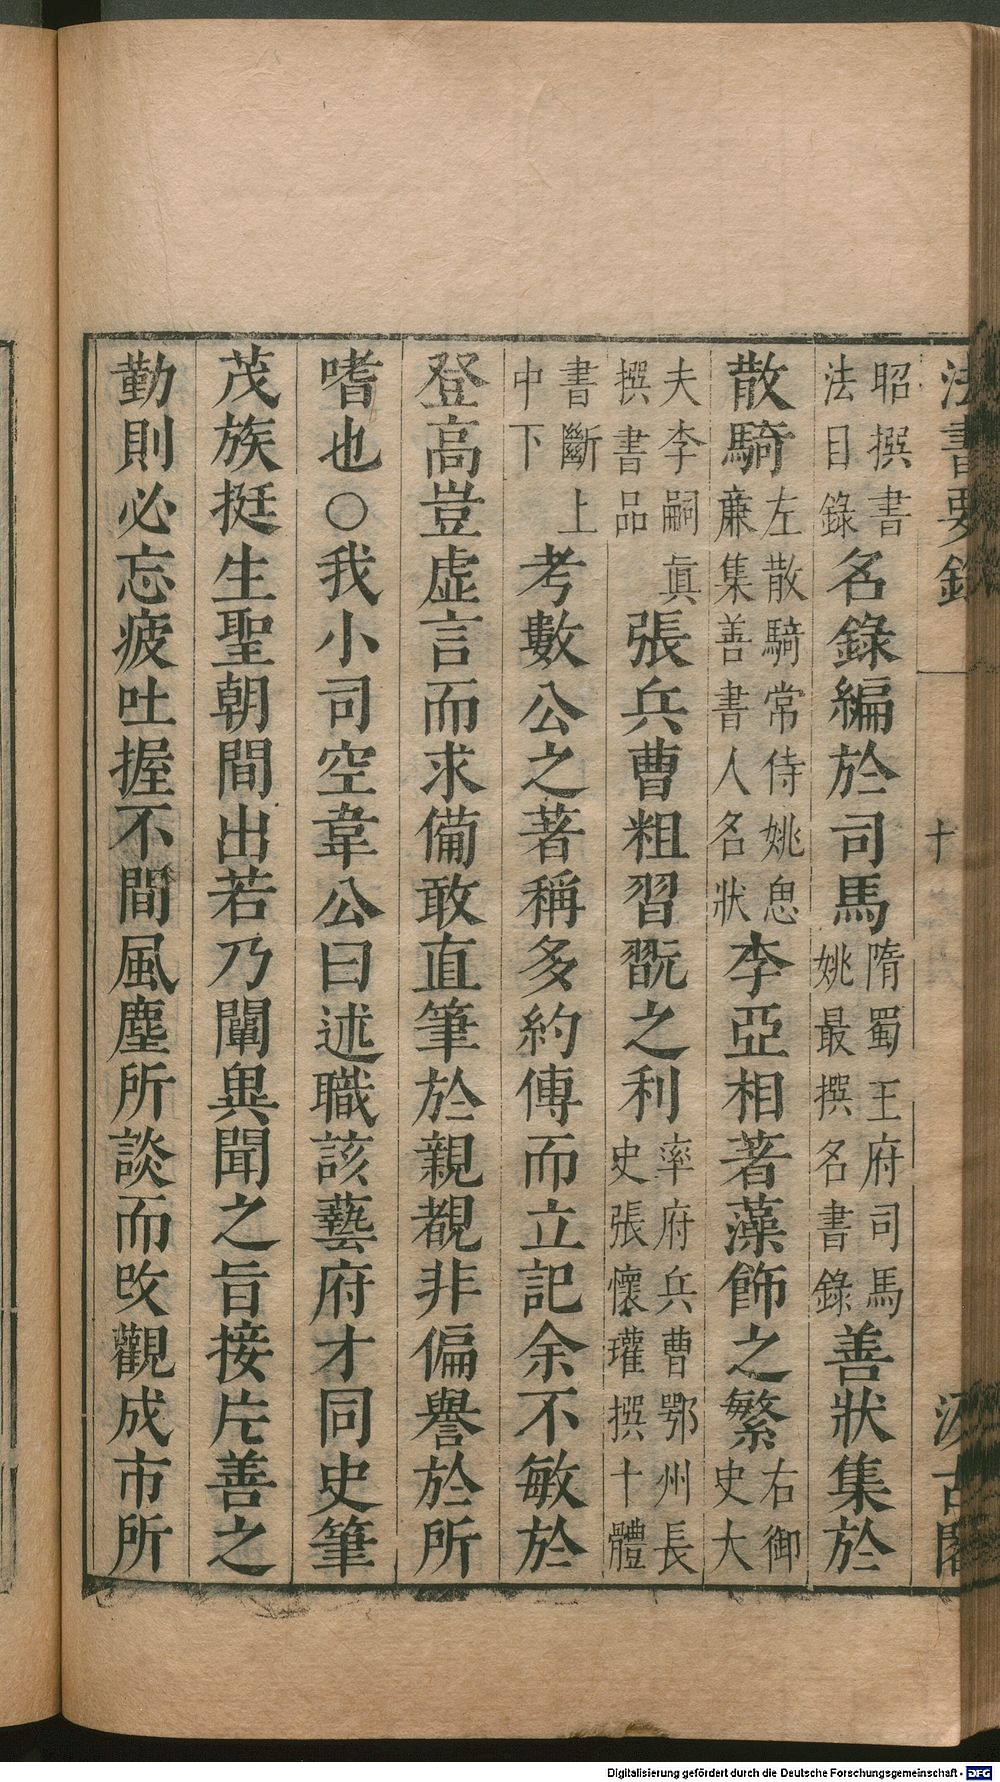 法書要錄 十 汲古閣
昭撰書法目錄名錄編於司馬隋蜀王府司馬姚最撰名書錄善狀集於
散騎左散騎常侍姚思亷集善書人名狀李亞相著藻飾之繁右御史大
夫李嗣眞撰書品張兵曹粗習翫之利率府兵曹鄂州長史張懷瓘撰十體
書斷上中下考數公之著稱多約傳而立記余不敏於
登高豈虛言而求備敢直筆於親覩非偏譽於所
嗜也○我小司空韋公曰述職該藝府才同史筆
茂族挺生聖朝間出若乃闡異聞之旨接片善之
勤則必忘疲吐握不間風塵所談而改觀成市所
Digitalisierung gefördert durch die Deutsche Forschungsgemeinschaft - DFG